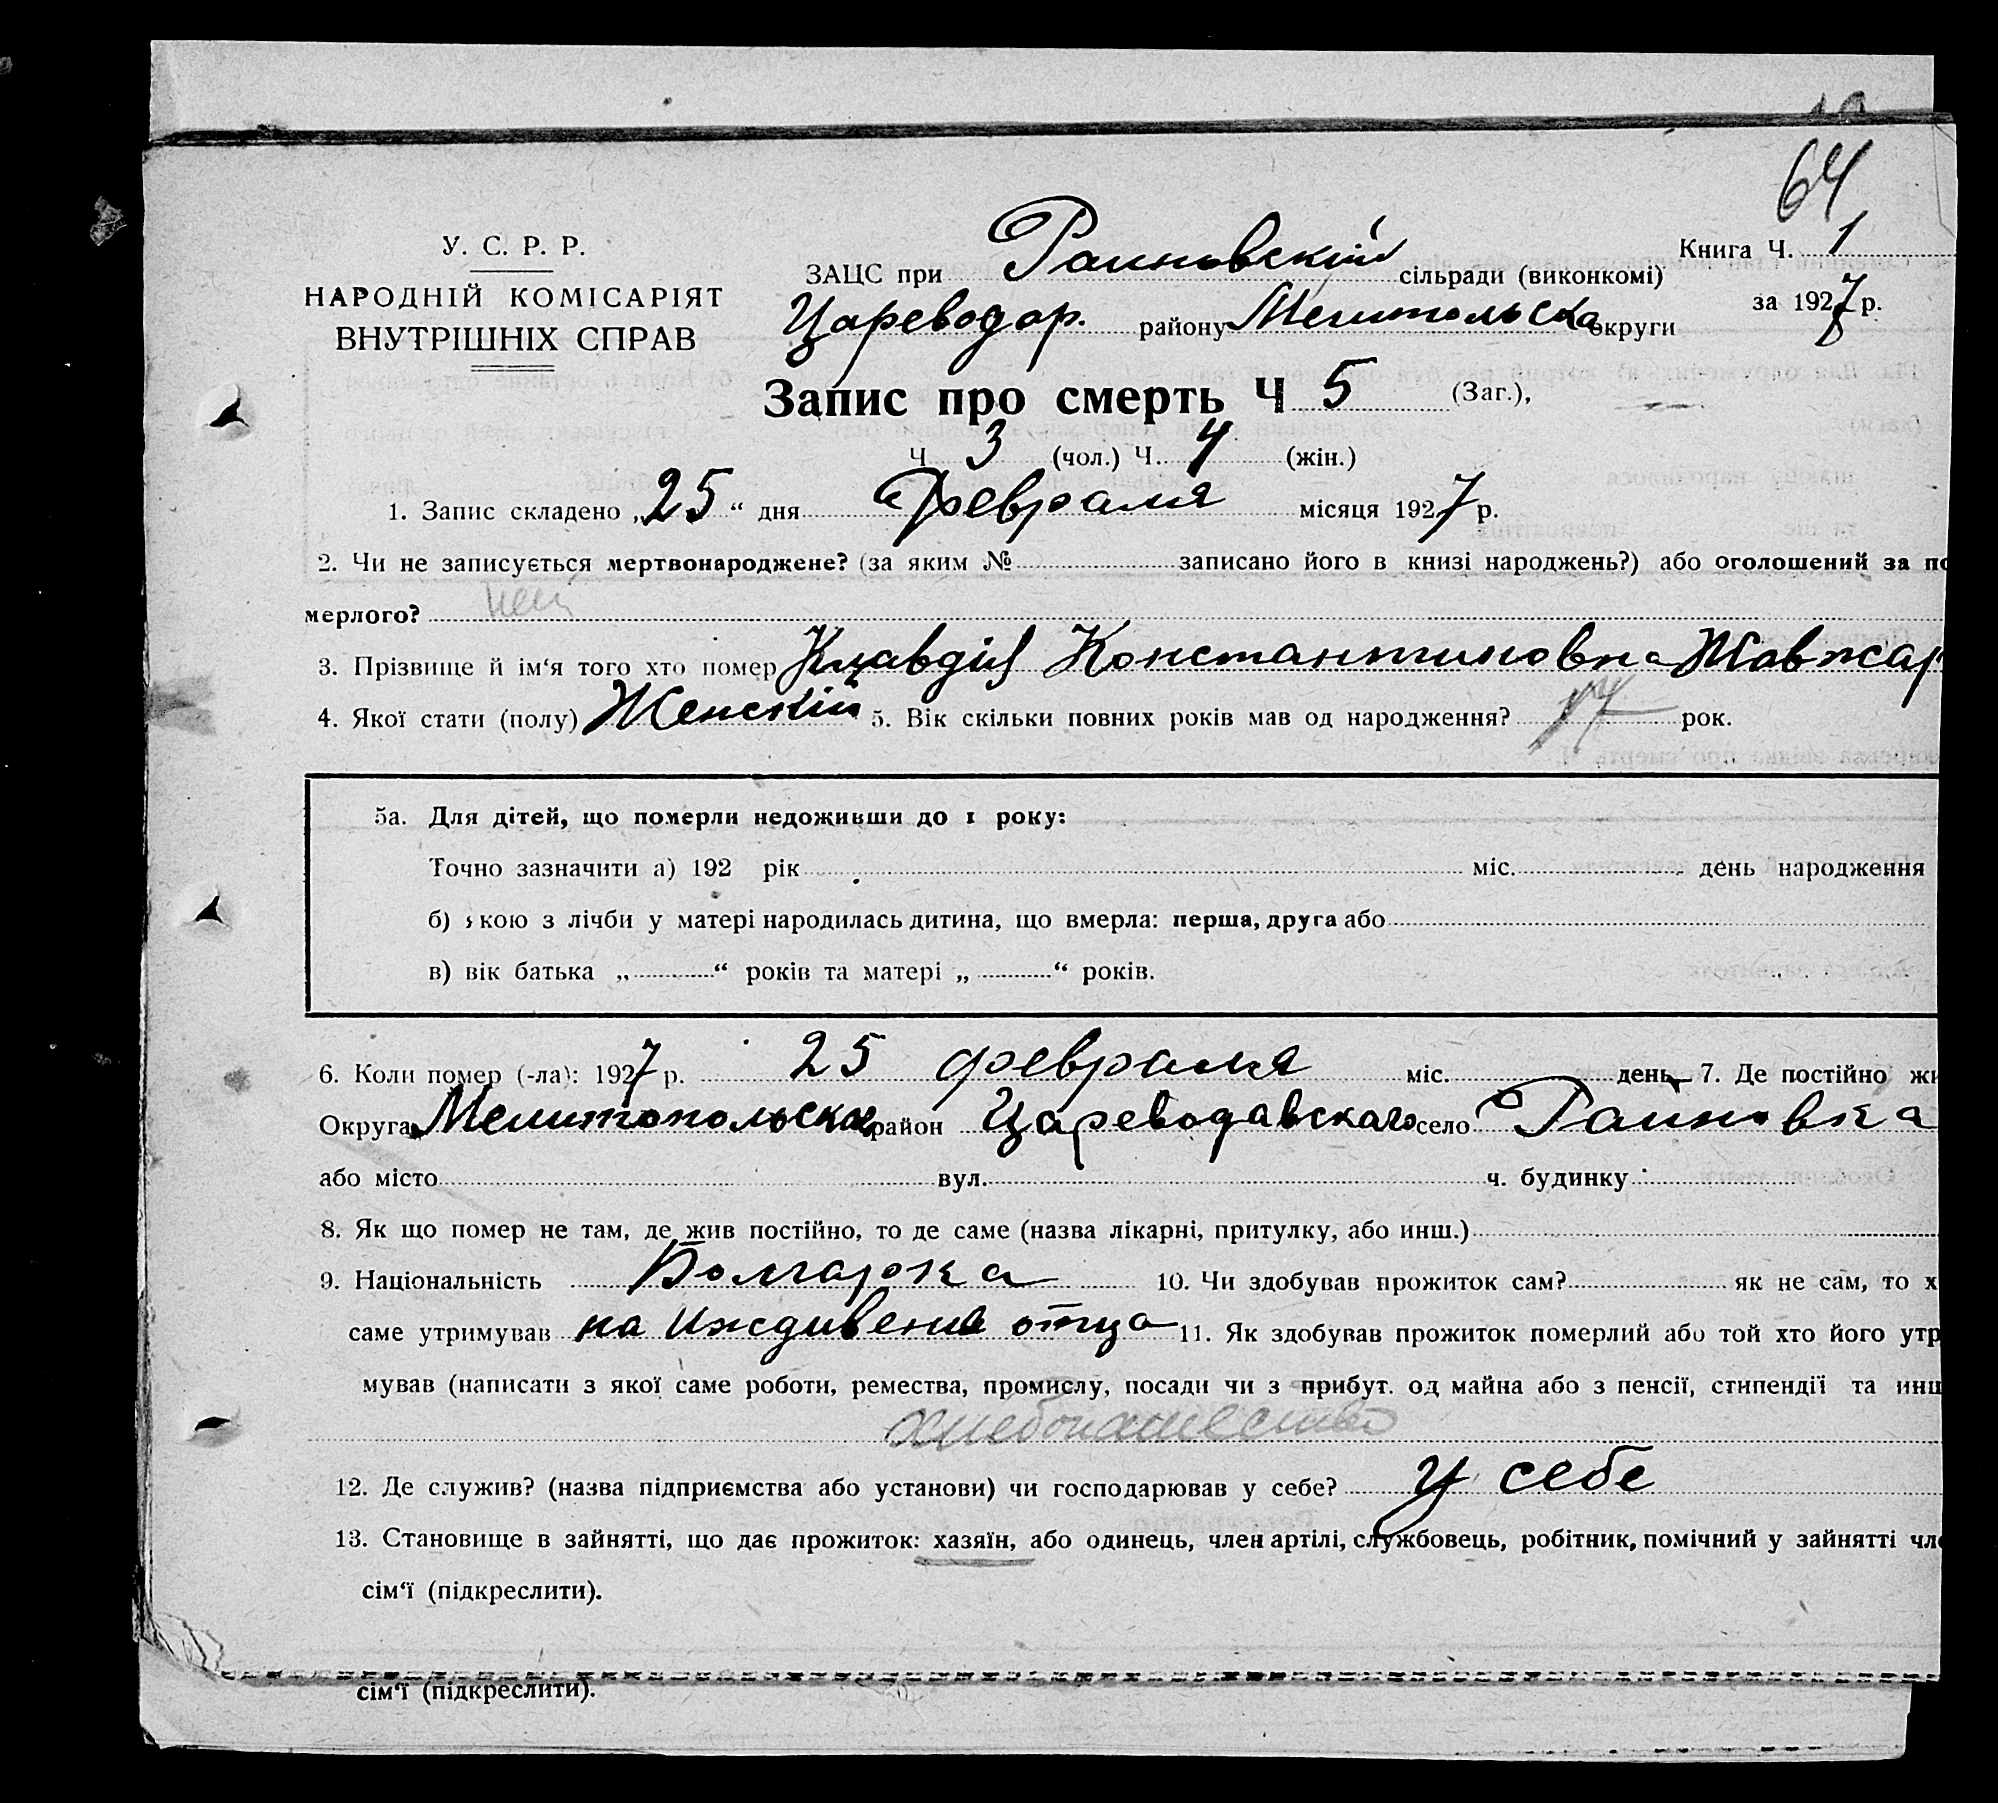 64
У. С. Р. Р.
НАРОДНІЙ КОМІСАРІЯТ
ВНУТРІШНІХ СПРАВ
ЗАЦС при Раиновскій сільради (виконкомі)
Книга Ч. 1
за 1927 р.
Цареводар. району Мелитопольска округи
Запис про смерть Ч 5 (Заг.),
Ч 3 (чол.) Ч. 4 (жін.)
1. Запис складено „25“ дня Февраля місяця 1927 р.
2. Чи не записується мертвонароджене? (за яким № записано його в книзі народжень?) або оголошений за по
мерлого? нет
3. Прізвище й ім‘я того хто помер Клавдія Константиновна Жавжар
4. Якої стати (полу) Женскій 5. Вік скільки повних років мав од народження? 17 рок.
5а. Для дітей, що померли недоживши до 1 року:
Точно зазначити а) 192 рік міс. день народження
б) якою з лічби у матері народилась дитина, що вмерла: перша, друга або
в) вік батька „ “ років та матері „ “ років.
6. Коли помер (-ла): 1927 р. 25 февраля міс. день 7. Де постійно жи
Округа Мелитопольска район Цареводавскаго село Раиновка
або місто вул. ч. будинку
8. Як що помер не там, де жив постійно, то де саме (назва лікарні, притулку, або инш.)
9. Національність Болгарка 10. Чи здобував прожиток сам? як не сам, то х
саме утримував на иждивение отца 11. Як здобував прожиток померлий або той хто його утр
мував (написати з якої саме роботи, ремества, промислу, посади чи з прибут. од майна або з пенсії, стипендії та инш
хлебопашество
12. Де служив? (назва підприємства або установи) чи господарював у себе? у себе
13. Становище в зайнятті, що дає прожиток: хазяїн, або одинець, член артілі, службовець, робітник, помічний у зайнятті чле
сім‘ї (підкреслити).
сім‘ї (підкреслити).